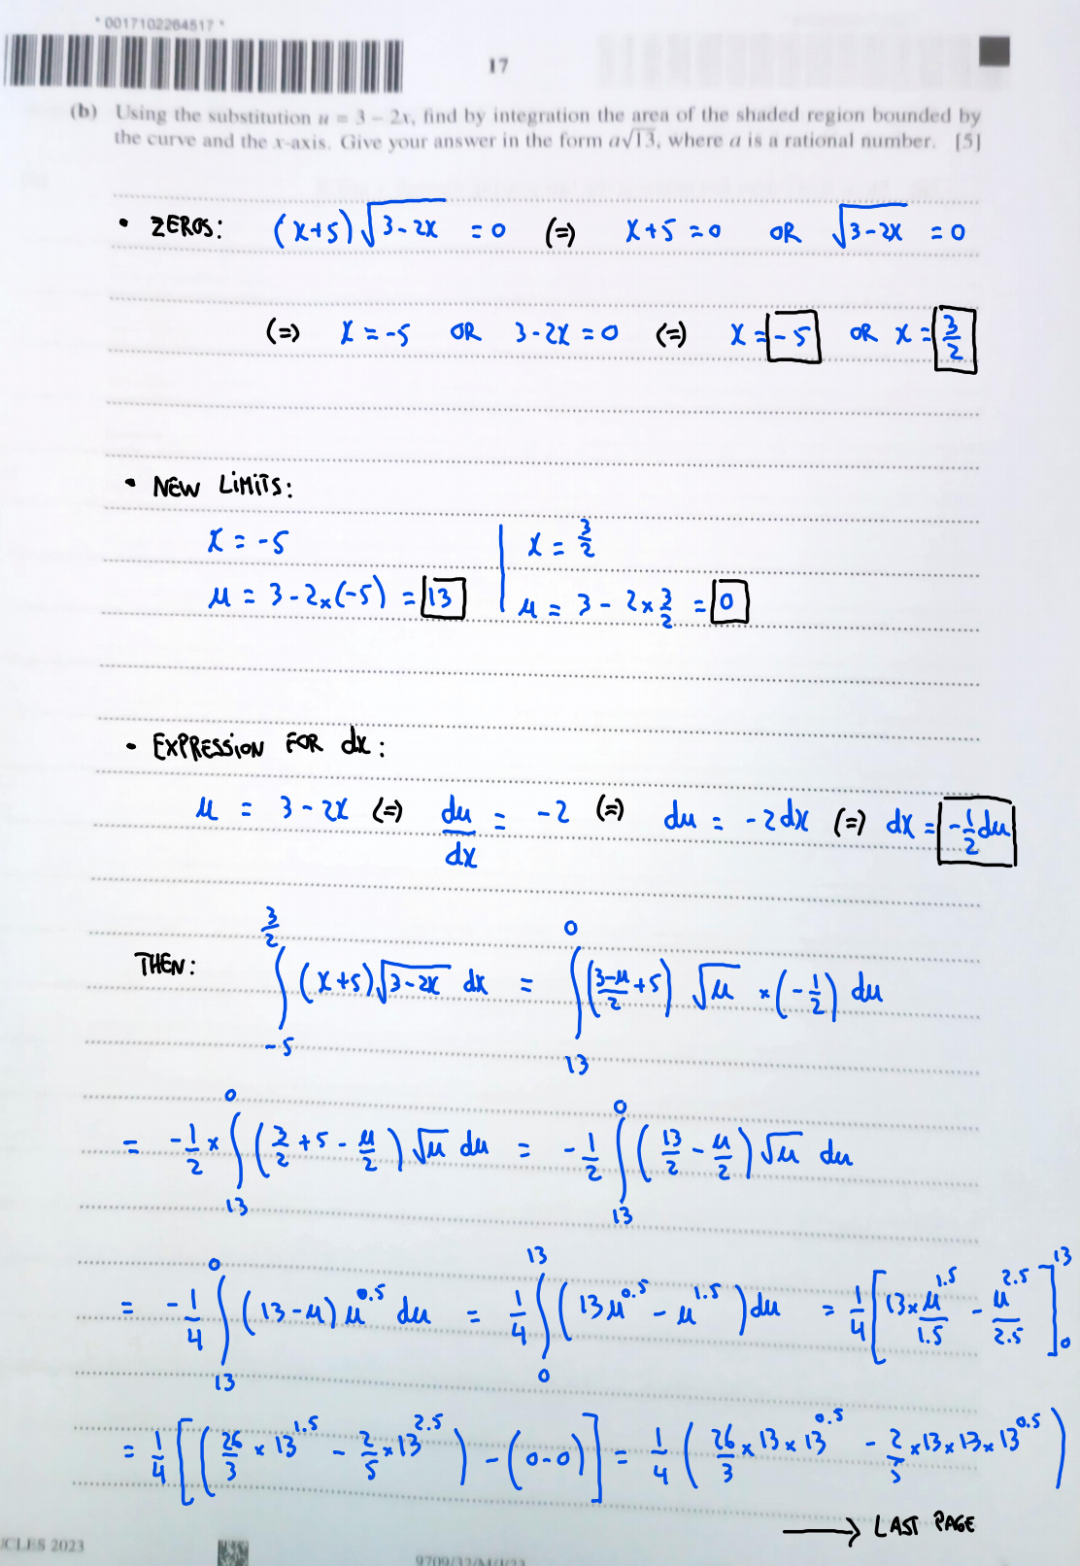 * 0017102264517 *
17
(b) Using the substitution u = 3 − 2x, find by integration the area of the shaded region bounded by
the curve and the x-axis. Give your answer in the form a√13, where a is a rational number. [5]
• ZEROS: (x+5)√(3-2x) = 0 (=) x+5 = 0 OR √(3-2x) = 0
(=) x = -5 OR 3-2x = 0 (=) x = -5 OR x = 3/2
• NEW LIMITS:
x = -5 | x = 3/2
u = 3-2×(-5) = 13 | u = 3 - 2×3/2 = 0
• EXPRESSION FOR dx:
u = 3-2x (=) du/dx = -2 (=) du = -2dx (=) dx = -1/2 du
THEN: ∫_{-5}^{3/2} (x+5)√(3-2x) dx = ∫_{13}^{0} ((3-u)/2 + 5) √u × (-1/2) du
= -1/2 × ∫_{13}^{0} (3/2 + 5 - u/2) √u du = -1/2 ∫_{13}^{0} (13/2 - u/2) √u du
= -1/4 ∫_{13}^{0} (13-u) u^0.5 du = 1/4 ∫_{0}^{13} (13u^0.5 - u^1.5) du = 1/4 [13×u^1.5/1.5 - u^2.5/2.5]_{0}^{13}
= 1/4 [(26/3 × 13^1.5 - 2/5 × 13^2.5) - (0-0)] = 1/4 (26/3 × 13 × 13^0.5 - 2/5 × 13 × 13 × 13^0.5)
⟶ LAST PAGE
UCLES 2023
9709/32/M/J/23